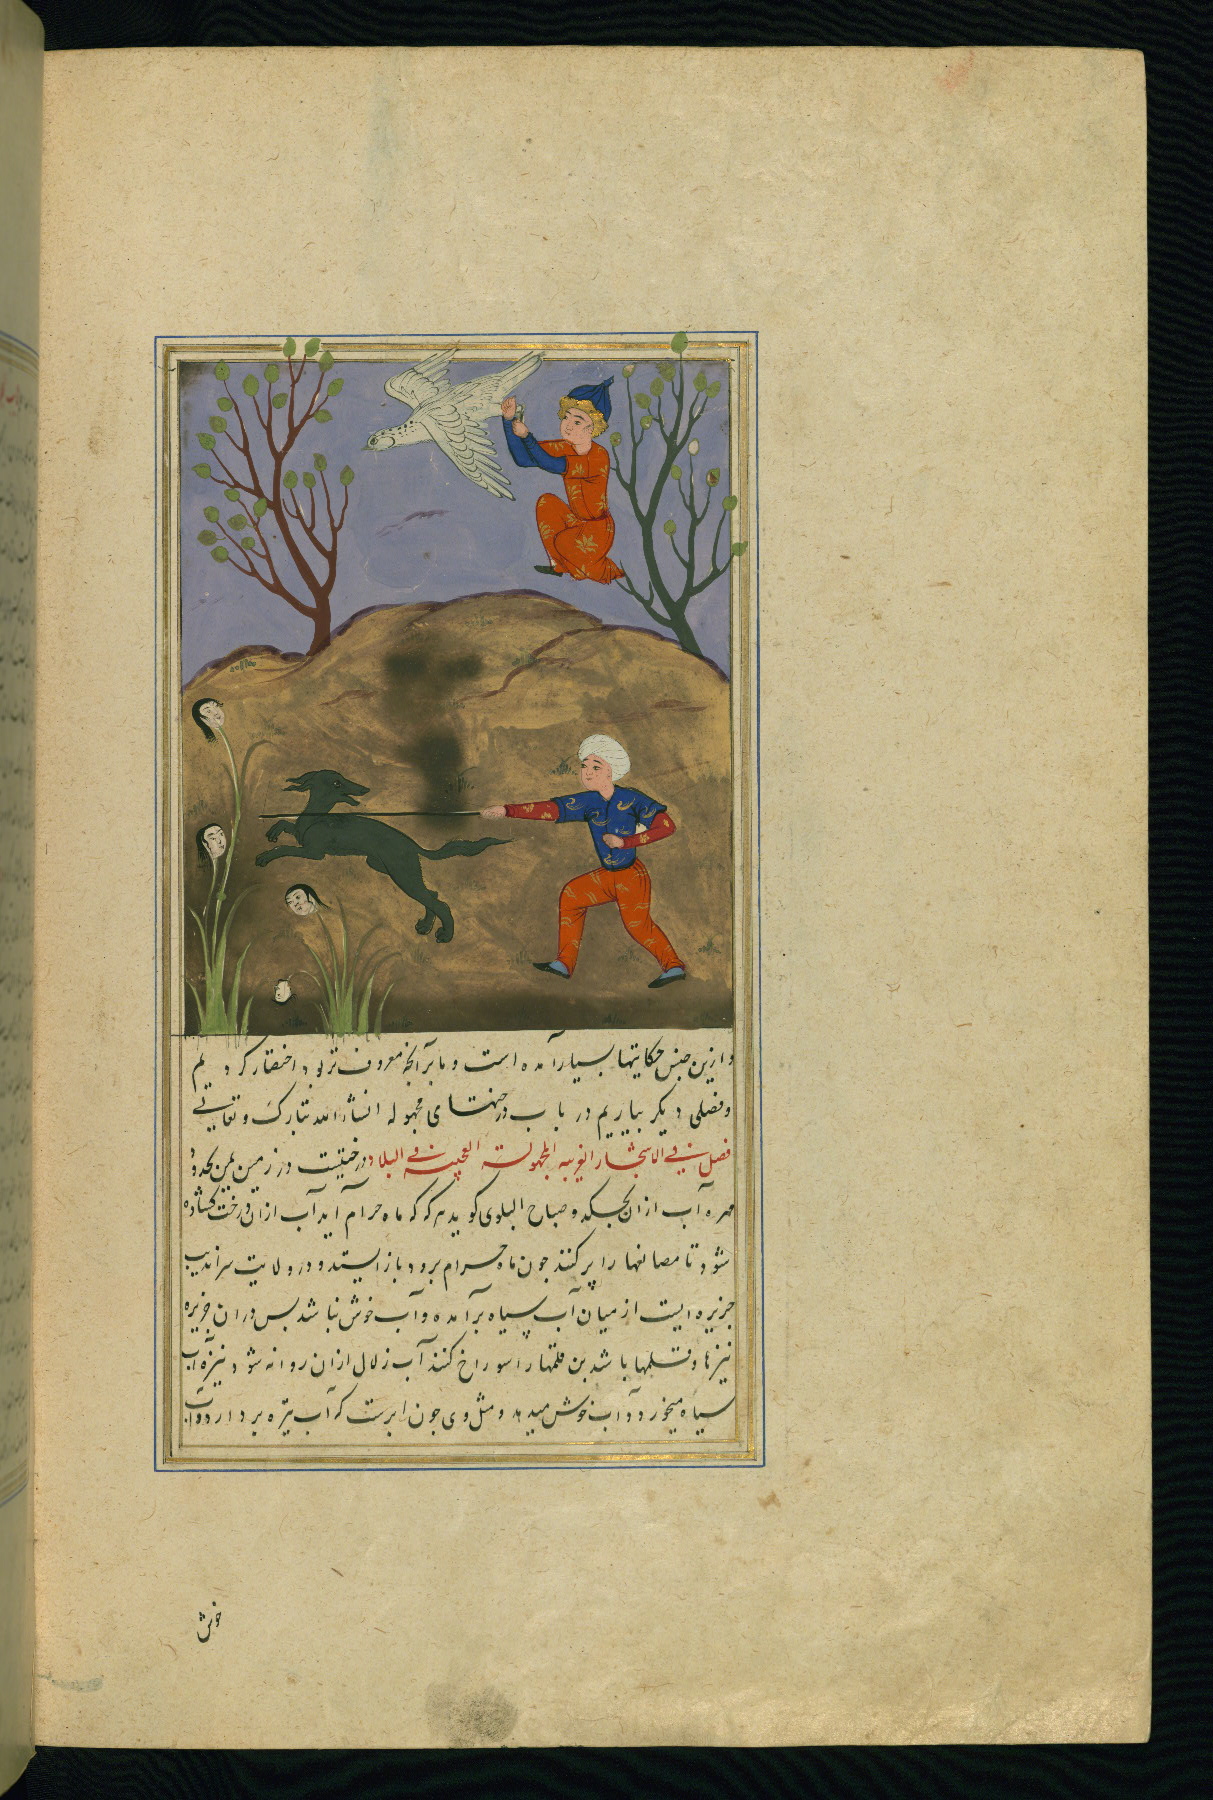 وازین جنس حکایتها بسیار آمده است و ما بر آنچه معروف تر بود اختصار کردیم
و فصلی دیکر بیاریم در باب درختهای مجهوله انشاء الله تبارک و تعالی
فصل فی الاشجار الغریبه المجهولة العجیبه فی البلاد درختیست در زمین یمن بحدود
مهره آب ازان بچکد و صباح البلوی کوید هرکه که ماه حرام آید آب ازان درخت کشاده
شود تا مصانعها را پر کنند جون ماه حرام برود باز ایستد و در ولایت سراندیب
جزیره ایست از میان آب سیاه برآمده و آب خوش نباشد بس دران جزیره
نیزها و قلمها باشد بن قلمها را سوراخ کنند آب زلال ازان روانه شود نیزه آب
سیاه میخورد و آب خوش میدهد و مثل وی جون ابرست که آب تیره بردارد و آب
خوش